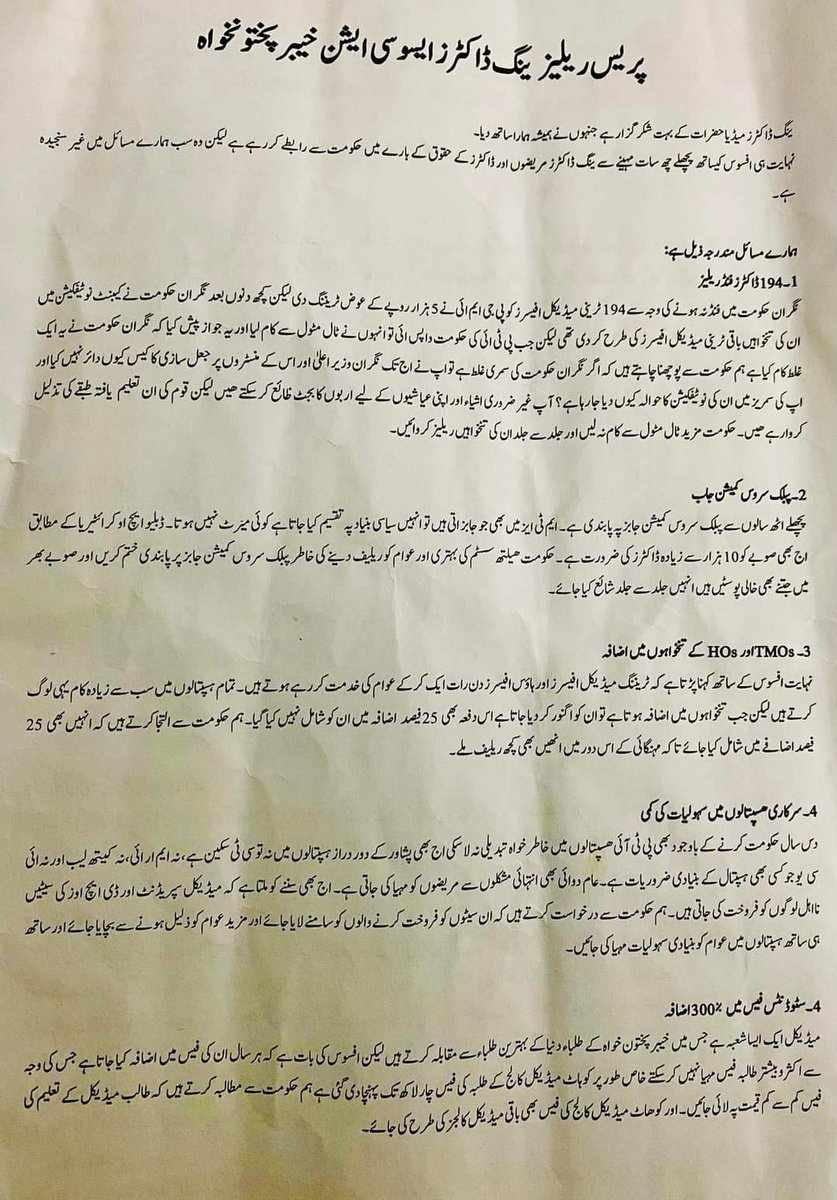 پریس ریلیز ینگ ڈاکٹرز ایسوسی ایشن خیبر پختونخواہ
ینگ ڈاکٹرز میڈیا حضرات کے بہت شکر گزار ہے جنہوں نے ہمیشہ ہمارا ساتھ دیا۔
نہایت ہی افسوس کیساتھ پچھلے چھ سات مہینے سے ینگ ڈاکٹرز مریضوں اور ڈاکٹرز کے حقوق کے بارے میں حکومت سے رابطے کر رہے ہے لیکن وہ سب ہمارے مسائل میں غیر سنجیدہ
ہے۔
ہمارے مسائل مندرجہ ذیل ہے:
1۔194 ڈاکٹرز فنڈ ریلیز
نگران حکومت میں فنڈ نہ ہونے کی وجہ سے 194 ٹرینی میڈیکل افیسرز کو پی جی ایم ائی نے 5 ہزار روپے کے عوض ٹریننگ دی لیکن کچھ دنوں بعد نگران حکومت نے کیبنٹ نوٹیفکیشن میں
ان کی تنخواہیں باقی ٹرینی میڈیکل افیسرز کی طرح کر دی تھی لیکن جب پی ٹی ائی کی حکومت واپس ائی تو انہوں نے ٹال مٹول سے کام لیا اور یہ جواز پیش کیا کہ نگران حکومت نے یہ ایک
غلط کام کیا ہے ہم حکومت سے پوچھنا چاہتے ہیں کہ اگر نگران حکومت کی سمری غلط ہے تو اپ نے اج تک نگران وزیر اعلیٰ اور اس کے منسٹروں پر جعل سازی کا کیس کیوں دائر نہیں کیا اور
اپ کی سمریز میں ان کی نوٹیفکیشن کا حوالہ کیوں دیا جا رہا ہے؟ آپ غیر ضروری اشیاء اور اپنی عیاشیوں کے لیے اربوں کا بجٹ ظائع کر سکتے ھیں لیکن قوم کی ان تعلیم یافتہ طبقے کی تذلیل
کروا رہے ھیں۔ حکومت مزید ٹال مٹول سے کام نہ لیں اور جلد سے جلد ان کی تنخواہیں ریلیز کروائیں۔
2۔ پبلک سروس کمیشن جاب
پچھلے اٹھ سالوں سے پبلک سروس کمیشن جابز پہ پابندی ہے۔ ایم ٹی ایز میں بھی جو جابز اتی ہیں تو انہیں سیاسی بنیاد پہ تقسیم کیا جاتا ہے کوئی میرٹ نہیں ہوتا۔ ڈبلیو ایچ او کرائٹیریا کے مطابق
اج بھی صوبے کو 10 ہزار سے زیادہ ڈاکٹرز کی ضرورت ہے۔ حکومت ہیلتھ سسٹم کی بہتری اور عوام کو ریلیف دینے کی خاطر پبلک سروس کمیشن جابز پر پابندی ختم کریں اور صوبے بھر
میں جتنے بھی خالی پوسٹیں ہیں انہیں جلد سے جلد شائع کیا جائے۔
3۔ TMOs اور HOs کے تنخواہوں میں اضافہ
نہایت افسوس کے ساتھ کہنا پڑتا ہے کہ ٹریننگ میڈیکل افیسرز اور ہاؤس افیسرز دن رات ایک کر کے عوام کی خدمت کر رہے ہوتے ہیں۔ تمام ہسپتالوں میں سب سے زیادہ کام یہی لوگ
کرتے ہیں لیکن جب تنخواہوں میں اضافہ ہوتا ہے تو ان کو اگنور کر دیا جاتا ہے اس دفعہ بھی 25 فیصد اضافہ میں ان کو شامل نہیں کیا گیا۔ ہم حکومت سے التجا کرتے ہیں کہ انہیں بھی 25
فیصد اضافے میں شامل کیا جائے تاکہ مہنگائی کے اس دور میں انھیں بھی کچھ ریلیف ملے۔
4۔ سرکاری ھسپتالوں میں سہولیات کی کمی
دس سال حکومت کرنے کے باوجود بھی پی ٹی آئی ھسپتالوں میں خاطر خواہ تبدیلی نہ لا سکی اج بھی پشاور کے دور دراز ہسپتالوں میں نہ تو سی ٹی سکین ہے، نہ ایم ار ائی، نہ کیتھ لیب اور نہ ائی
سی یو جو کسی بھی ہسپتال کے بنیادی ضروریات ہے۔ عام دوائی بھی انتہائی مشکلوں سے مریضوں کو مہیا کی جاتی ہے۔ اج بھی سننے کو ملتا ہے کہ میڈیکل سپریڈنٹ اور ڈی ایچ اوز کی سیٹیں
نااہل لوگوں کو فروخت کی جاتی ہیں۔ ہم حکومت سے درخواست کرتے ہیں کہ ان سیٹوں کو فروخت کرنے والوں کو سامنے لایا جائے اور مزید عوام کو ذلیل ہونے سے بچایا جائے اور ساتھ
ہی ساتھ ہسپتالوں میں عوام کو بنیادی سہولیات مہیا کی جائیں۔
4۔ سٹوڈنٹس فیس میں 300% اضافہ
میڈیکل ایک ایسا شعبہ ہے جس میں خیبر پختون خواہ کے طلباء دنیا کے بہترین طلباء سے مقابلہ کرتے ہیں لیکن افسوس کی بات ہے کہ ہر سال ان کی فیس میں اضافہ کیا جاتا ہے جس کی وجہ
سے اکثر و بیشتر طالبہ فیس مہیا نہیں کر سکتے خاص طور پر کوہاٹ میڈیکل کالج کے طلبہ کی فیس چار لاکھ تک پہنچا دی گئی ہے ہم حکومت سے مطالبہ کرتے ہیں کہ طالب میڈیکل کے تعلیم کی
فیس کم سے کم قیمت پہ لائی جائیں۔ اور کوھاٹ میڈیکل کالج کی فیس بھی باقی میڈیکل کالجز کی طرح کی جائے۔